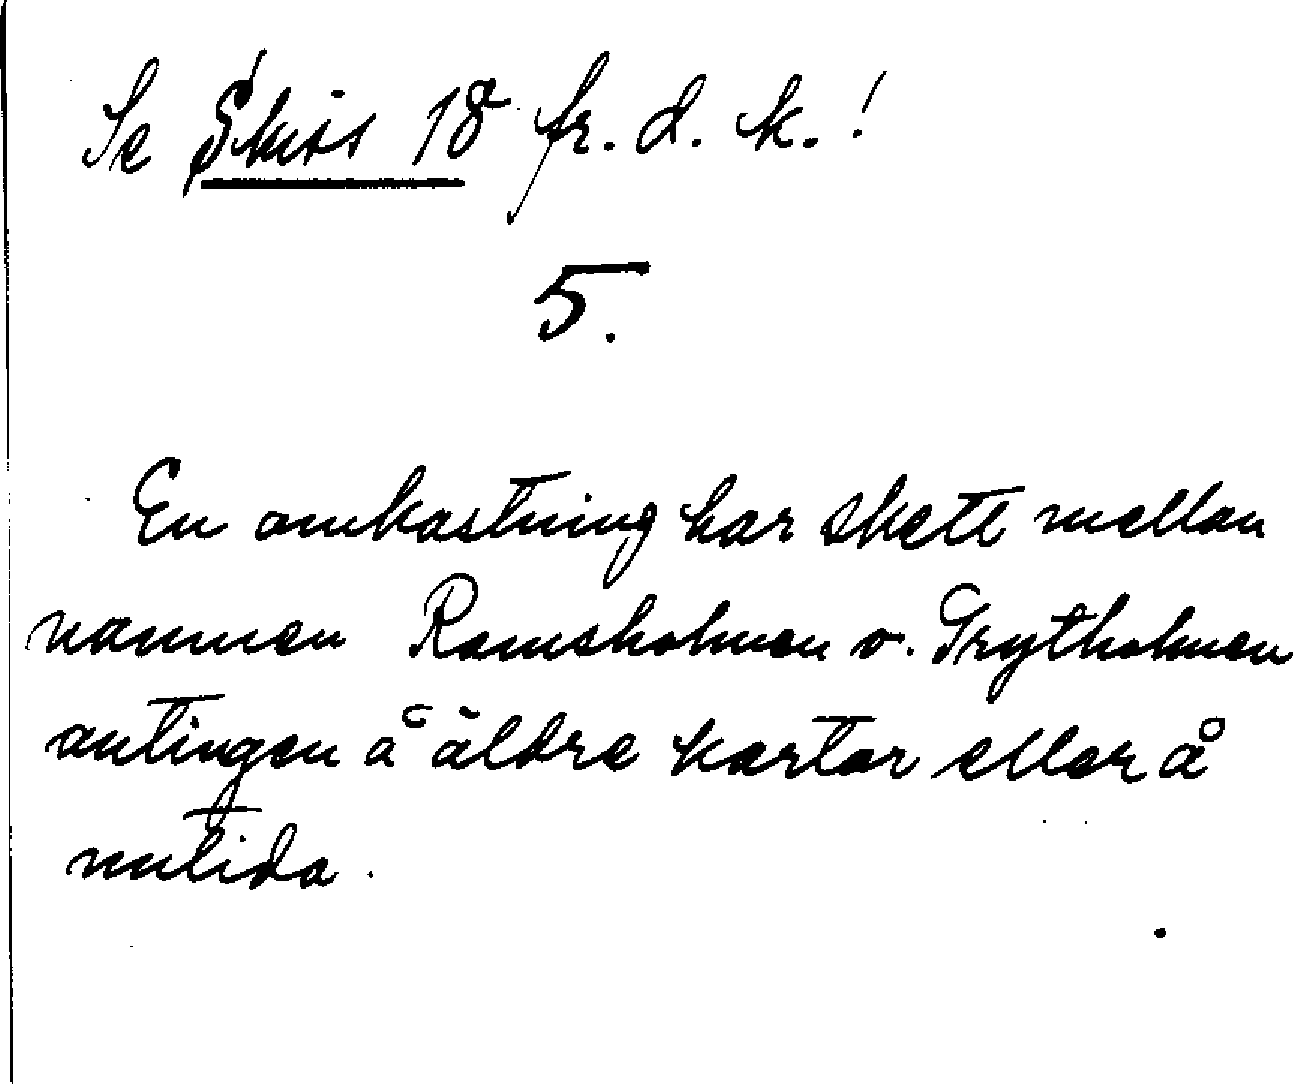 Se Skiss 18 fr. d. k.!
5.
En omkastning har skett mellan
namnen Ramsholmen o. Grytholmen
antingen å äldre kartor eller å
nutida.